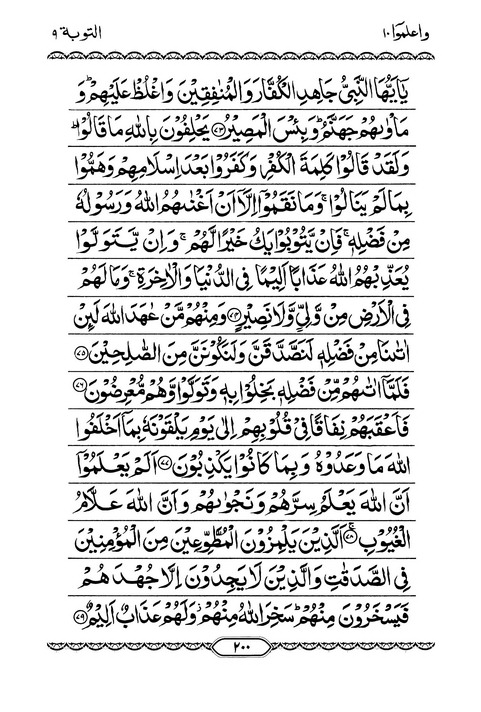 واعلموا ١٠ التوبة ٩
يٰۤاَيُّهَا النَّبِيُّ جَاهِدِ الْكُفَّارَ وَالْمُنٰفِقِيْنَ وَاغْلُظْ عَلَيْهِمْ ؕ وَ
مَاْوٰىهُمْ جَهَنَّمُ ؕ وَبِئْسَ الْمَصِيْرُ ﴿٧٣﴾ يَحْلِفُوْنَ بِاللّٰهِ مَا قَالُوْا ؕ
وَلَقَدْ قَالُوْا كَلِمَةَ الْكُفْرِ وَكَفَرُوْا بَعْدَ اِسْلَامِهِمْ وَهَمُّوْا
بِمَا لَمْ يَنَالُوْا ۚ وَمَا نَقَمُوْۤا اِلَّاۤ اَنْ اَغْنٰىهُمُ اللّٰهُ وَرَسُوْلُهٗ
مِنْ فَضْلِهٖ ۚ فَاِنْ يَّتُوْبُوْا يَكُ خَيْرًا لَّهُمْ ۚ وَاِنْ يَّتَوَلَّوْا
يُعَذِّبْهُمُ اللّٰهُ عَذَابًا اَلِيْمًا فِى الدُّنْيَا وَالْاٰخِرَةِ ۚ وَمَا لَهُمْ
فِى الْاَرْضِ مِنْ وَّلِيٍّ وَّلَا نَصِيْرٍ ﴿٧٤﴾ وَمِنْهُمْ مَّنْ عٰهَدَ اللّٰهَ لَئِنْ
اٰتٰىنَا مِنْ فَضْلِهٖ لَنَصَّدَّقَنَّ وَلَنَكُوْنَنَّ مِنَ الصّٰلِحِيْنَ ﴿٧٥﴾
فَلَمَّاۤ اٰتٰىهُمْ مِّنْ فَضْلِهٖ بَخِلُوْا بِهٖ وَتَوَلَّوْا وَّهُمْ مُّعْرِضُوْنَ ﴿٧٦﴾
فَاَعْقَبَهُمْ نِفَاقًا فِىْ قُلُوْبِهِمْ اِلٰى يَوْمِ يَلْقَوْنَهٗ بِمَاۤ اَخْلَفُوا
اللّٰهَ مَا وَعَدُوْهُ وَبِمَا كَانُوْا يَكْذِبُوْنَ ﴿٧٧﴾ اَلَمْ يَعْلَمُوْۤا
اَنَّ اللّٰهَ يَعْلَمُ سِرَّهُمْ وَنَجْوٰىهُمْ وَاَنَّ اللّٰهَ عَلَّامُ
الْغُيُوْبِ ۚ ﴿٧٨﴾ اَلَّذِيْنَ يَلْمِزُوْنَ الْمُطَّوِّعِيْنَ مِنَ الْمُؤْمِنِيْنَ
فِى الصَّدَقٰتِ وَالَّذِيْنَ لَا يَجِدُوْنَ اِلَّا جُهْدَهُمْ
فَيَسْخَرُوْنَ مِنْهُمْ ؕ سَخِرَ اللّٰهُ مِنْهُمْ ؗ وَلَهُمْ عَذَابٌ اَلِيْمٌ ﴿٧٩﴾
٢٠٠